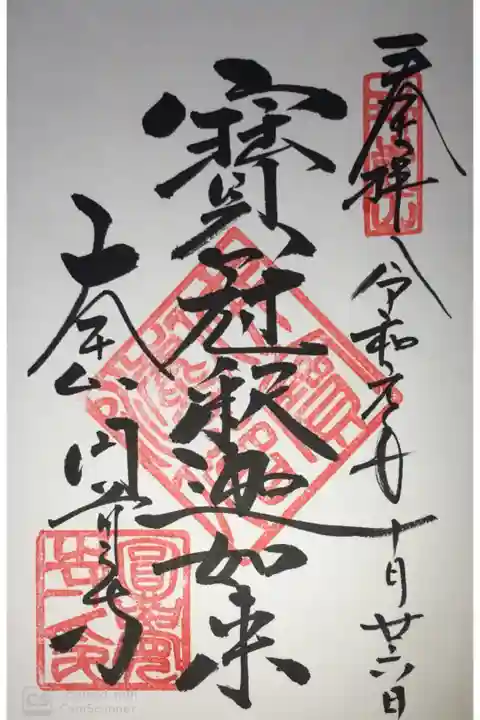 奉拝 令和元年十月廿六日
寶冠釈迦如来
大本山 円覚寺
Scanned with
CamScanner